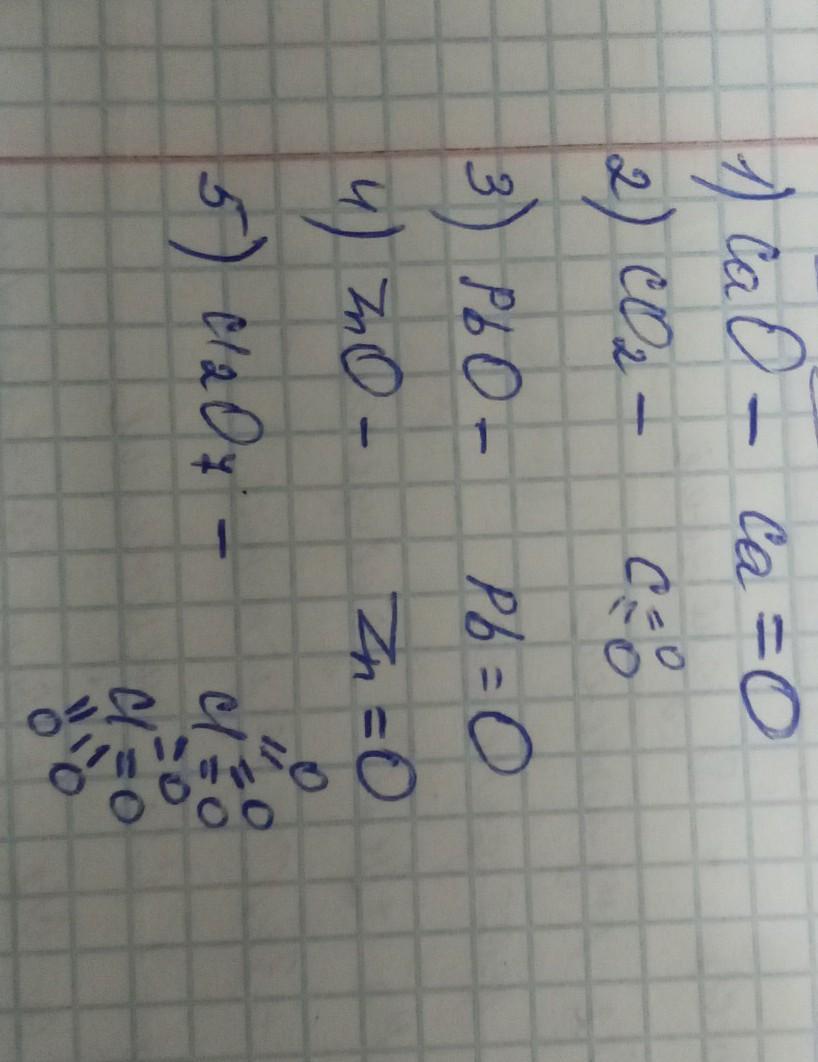 1) CaO - Ca = O
2) CO2 - C = O = O
3) PbO - Pb = O
4) ZnO - Zn = O
5) Cl2O7 -
= O
Cl = O
= O
= O
Cl = O
= O
= O